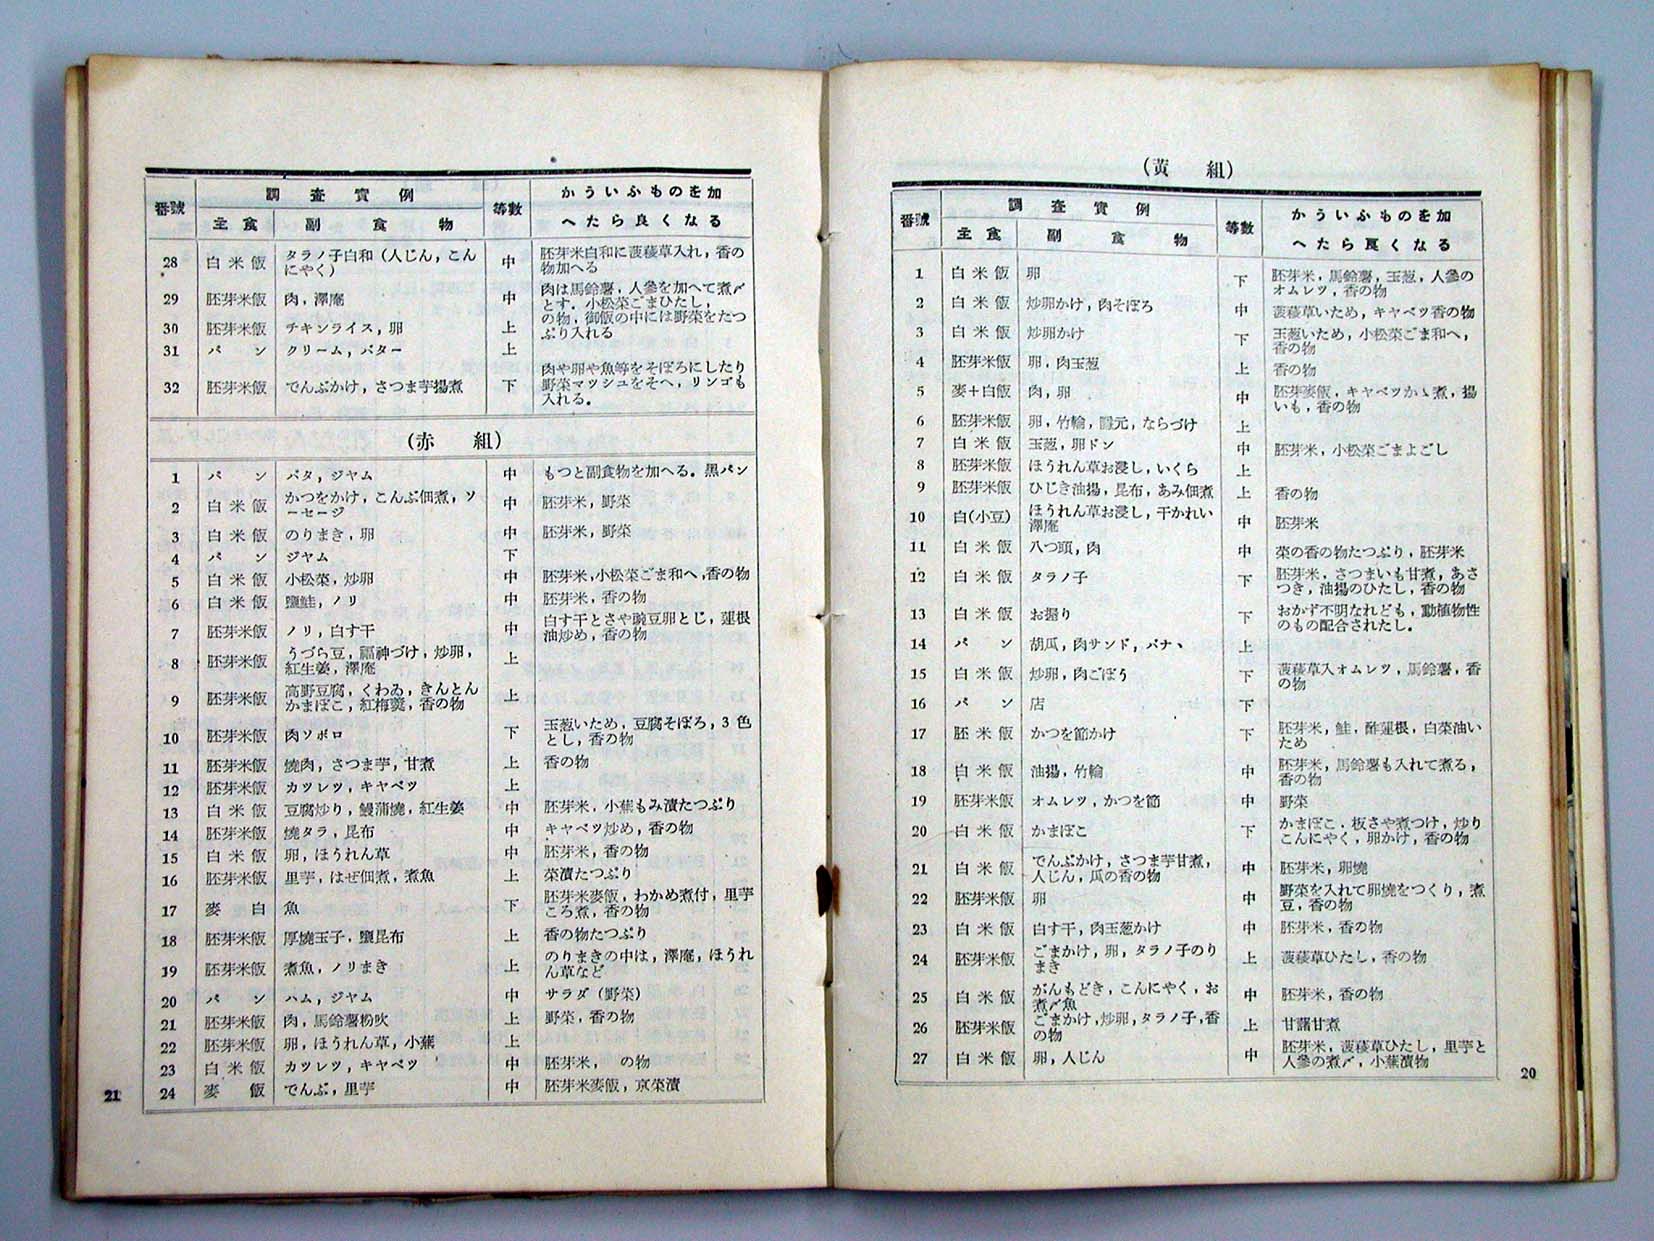 (黄　組)
番號 調査實例 等數 かういふものを加
主食 副食物 へたら良くなる
1 白米飯 卵 下 胚芽米，馬鈴薯，玉葱，人參の
オムレツ，香の物
2 白米飯 炒卵かけ，肉そぼろ 中 菠薐草いため，キヤベツ香の物
3 白米飯 炒卵かけ 下 玉葱いため，小松菜ごま和へ，
香の物
4 胚芽米飯 卵，肉玉葱 上 香の物
5 麥＋白飯 肉，卵 中 胚芽麥飯，キャベツかゝ煮，揚
いも，香の物
6 胚芽米飯 卵，竹輪，元，ならづけ 上
7 白米飯 玉葱，卵ドン 中 胚芽米，小松菜ごまよごし
8 胚芽米飯 ほうれん草お浸し，いくら 上
9 胚芽米飯 ひじき油揚，昆布，あみ佃煮 上 香の物
10 白(小豆) ほうれん草お浸し，干かれい
澤庵 中 胚芽米
11 白米飯 八つ頭，肉 中 菜の香の物たつぷり，胚芽米
12 白米飯 タラノ子 下 胚芽米，さつまいも甘煮，あさ
つき，油揚のひたし，香の物
13 白米飯 お握り 下 おかず不明なれども，動植物性
のもの配合されたし。
14 パン 胡瓜，肉サンド，バナヽ 上
15 白米飯 炒卵，肉ごぼう 下 菠薐草入オムレツ，馬鈴薯，香
の物
16 パン 店 下
17 胚米飯 かつを節かけ 下 胚芽米，鮭，酢蓮根，白菜油い
ため
18 白米飯 油揚，竹輪 中 胚芽米，馬鈴薯も入れて煮る，
香の物
19 胚芽米飯 オムレツ，かつを節 中 野菜
20 白米飯 かまぼこ 下 かまぼこ．板さや煮つけ，炒り
こんにやく，卵かけ，香の物
21 白米飯 でんぶかけ，さつま芋甘煮，
人じん，瓜の香の物 中 胚芽米，卵燒
22 胚芽米飯 卵 中 野菜を入れて卵燒をつくり，煮
豆，香の物
23 白米飯 白す干，肉玉葱かけ 中 胚芽米，香の物
24 胚芽米飯 ごまかけ，卵，タラノ子のり
まき 上 菠薐草ひたし，香の物
25 白米飯 がんもどき，こんにやく，お
煮〆魚 中 胚芽米，香の物
26 胚芽米飯 ごまかけ，炒卵，タラノ子，香
の物 上 甘藷甘煮
27 白米飯 卵，人じん 中 胚芽米，菠薐草ひたし，里芋と
人參の煮〆，小蕪漬物
20
番號 調査實例 等數 かういふものを加
主食 副食物 へたら良くなる
28 白米飯 タラノ子白和（人じん，こん
にやく） 中 胚芽米白和に菠薐草入れ，香の
物加へる
29 胚芽米飯 肉，澤庵 中 肉は馬鈴薯，人參を加へて煮〆
とす．小松菜ごまひたし，
30 胚芽米飯 チキンライス，卵 上 の物，御飯の中には野菜をたつ
ぷり入れる
31 パン クリーム，バター 上
32 胚芽米飯 でんぶかけ，さつま芋揚煮 下 肉や卵や魚等をそぼろにしたり
野菜マツシュをそへ，リンゴも
入れる。
(赤　組)
1 パン バタ，ジヤム 中 もつと副食物を加へる。黒パン
2 白米飯 かつをかけ，こんぶ佃煮，ソ
ーセージ 中 胚芽米，野菜
3 白米飯 のりまき，卵 中 胚芽米，野菜
4 パン ジヤム 下
5 白米飯 小松菜，炒卵 中 胚芽米，小松菜ごま和へ，香の物
6 白米飯 鹽鮭，ノリ 中 胚芽米，香の物
7 胚芽米飯 ノリ，白す干 中 白す干とさや豌豆卵とじ，蓮根
油炒め，香の物
8 胚芽米飯 うづら豆，福神づけ，炒卵，
紅生姜，澤庵 上
9 胚芽米飯 高野豆腐，くわゐ，きんとん
かまぼこ，紅梅羹，香の物 上
10 胚芽米飯 肉ソボロ 下 玉葱いため，豆腐そぼろ，3 色
とし，香の物
11 胚芽米飯 燒肉，さつま芋，甘煮 上 香の物
12 胚芽米飯 カツレツ，キヤベツ 上
13 白米飯 豆腐炒り，鰻蒲燒，紅生姜 中 胚芽米，小蕪もみ漬たつぷり
14 胚芽米飯 燒タラ，昆布 中 キヤベツ炒め，香の物
15 白米飯 卵，ほうれん草 中 胚芽米，香の物
16 胚芽米飯 里芋，はぜ佃煮，煮魚 上 菜漬たつぷり
17 麥白 魚 下 胚芽米麥飯，わかめ煮付，里芋
ころ煮，香の物
18 胚芽米飯 厚燒玉子，鹽昆布 上 香の物たつぷり
19 胚芽米飯 煮魚，ノリまき 上 のりまきの中は，澤庵，ほうれ
ん草など
20 パン ハム，ジヤム 中 サラダ（野菜）
21 胚芽米飯 肉，馬鈴薯粉吹 上 野菜，香の物
22 胚芽米飯 卵，ほうれん草，小蕪 上
23 白米飯 カツレツ，キヤベツ 中 胚芽米，　の物
24 麥飯 でんぶ，里芋 中 胚芽米麥飯，京菜漬
21